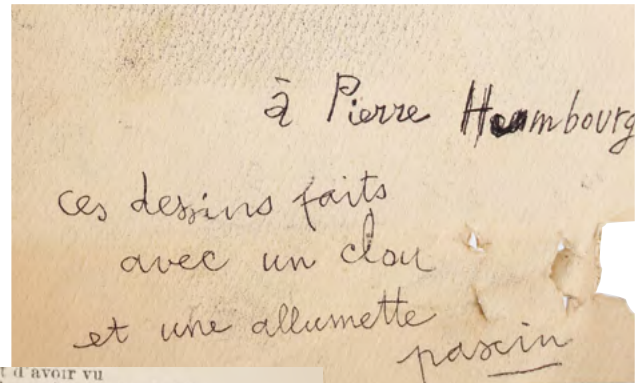 à Pierre Humbourg
ces dessins faits
avec un clou
et une allumette
pascin
t d'avoir vu